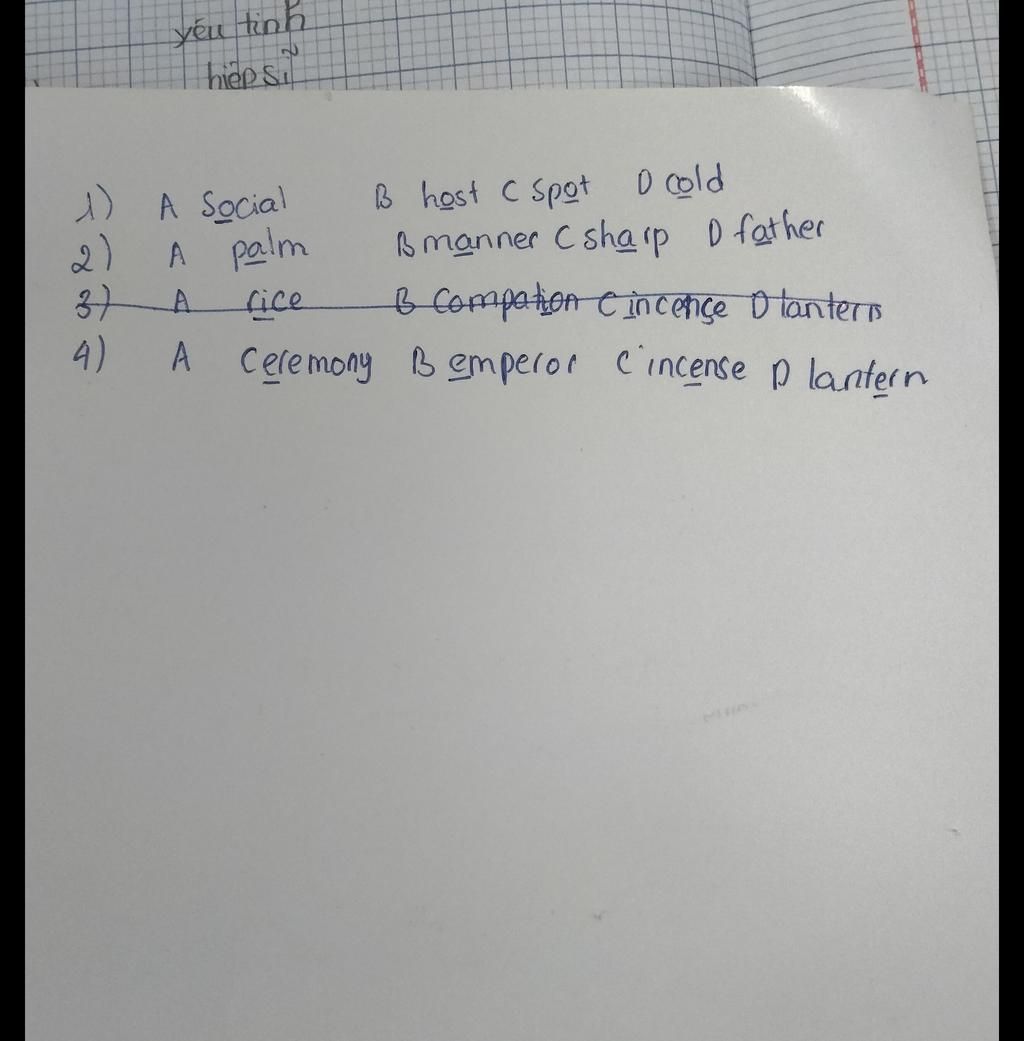 yêu tinh
hiệp sĩ
1) A Social B host C spot D cold
2) A palm B manner C sharp D father
3) A rice B compation C incense D lantern
4) A Ceremony B emperor C incense D lantern